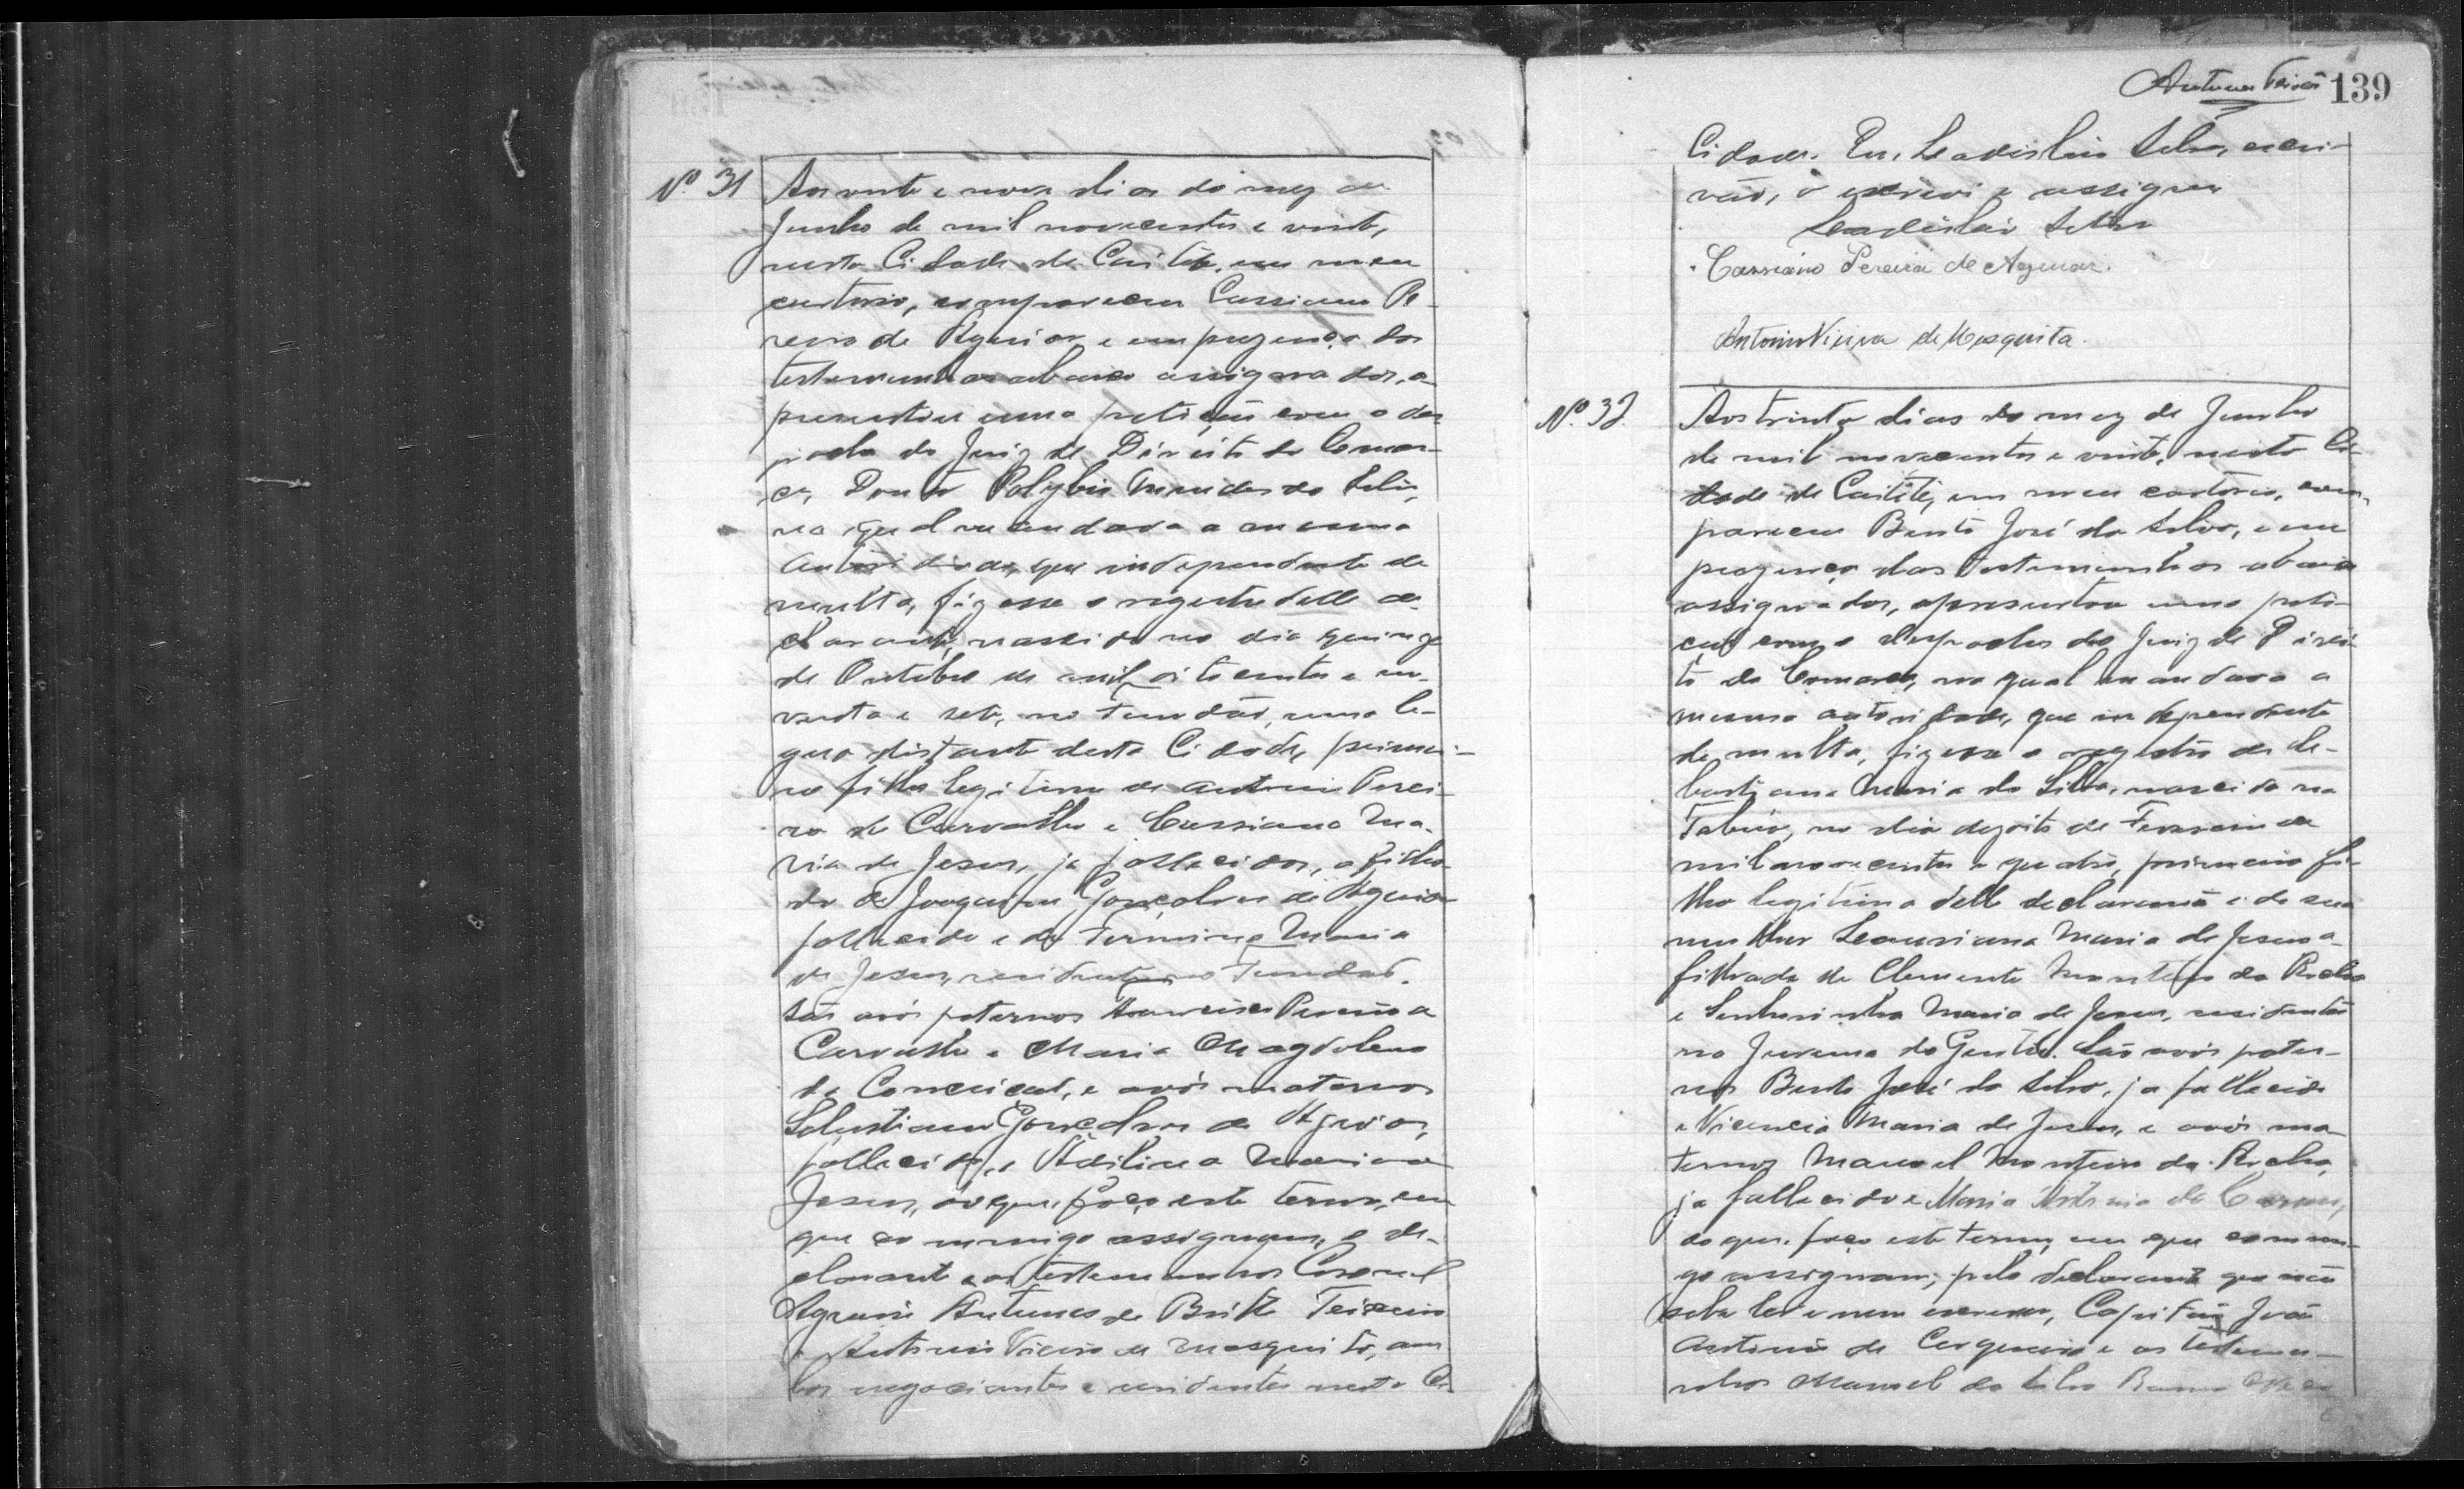 Nº 31
Aos vinte e nove dias do mez de
Junho de mil novecentos e vinte,
nesta Cidade de Caitité, em meu
cartorio, compareceu Cassiano Pe-
reira de Aguiar, e em prezença das
testemunhas abaixo assignadas, a-
presentou uma petição com o des-
pacho do Juiz de Direito da Comar-
ca, Doutor Polybio Mendes da Silva,
na qual mandava a mesma
autoridade, que independente de
multa, fizesse o registro delle de-
clarante, nascido no dia quinze
de Outubro de mil oitocentos e no-
venta e sete, no Fundão, uma le-
gua distante desta Cidade, primei-
ro filho legitimo de Antonio Perei-
ra de Carvalho e Cassiana Ma-
ria de Jesus, ja fallecidos, afilha-
do de Joaquim Gonçalves de Aguiar
fallecido e de Firmina Maria
de Jesus, residente no Fundão.
São avós paternos Francisco Pereira
Carvalho e Maria Magdalena
da Conceição, e avós maternos
Sebastiam Gonçalves de Aguiar,
fallecido, e Maria de
Jesus, do que faço este termo, em
que commigo assignam, o de-
clarante e as testemunhas Coronel
Antunes de Britto Teixeira
e Antonio Vieira de Mesquita, am-
bos negociantes e residentes nesta Ci-
Antunes Teixeira 139
Cidade. Eu, Ladislau Silva, escri-
vão, o escrevi e assigno
Ladislau Silva
Cassiano Pereira de Aguiar.
Antonio Vieira de Mesquita.
Nº 32.
Aos trinta dias do mez de Junho
de mil novecentos e vinte, nesta Ci-
dade de Caitité, em meu cartorio, com-
pareceu Bento José da Silva, e em
prezença das testemunhas abaixo
assignadas, apresentou uma peti-
ção com o despacho do Juiz de Direi-
to da Comarca, na qual mandava a
mesma autoridade, que independente
de multa, fizesse o registro de Se-
bastiana Maria da Silva, nascida na
no dia dezoito de Fevereiro de
mil novecentos e quatro, primeiro fi-
lho legitimo delle declarante e de sua
mulher Maria de Jesus a-
filhada de Clemente Monteiro da Rocha
e Senhorinha Maria de Jesus, residentes
na Jurema do Gentio. São avós pater-
nos Bento José da Silva, ja fallecido
e Vicencia Maria de Jesus, e avós ma-
ternos Manoel Monteiro da Rocha,
ja fallecido e Maria Antonia do Carmo,
do que faço este termo, em que commi-
go assignam, pelo declarante que não
sabe ler e nem escrever, Capitão João
Antonio de Cerqueira e as testemu-
nhas Manoel da Silva